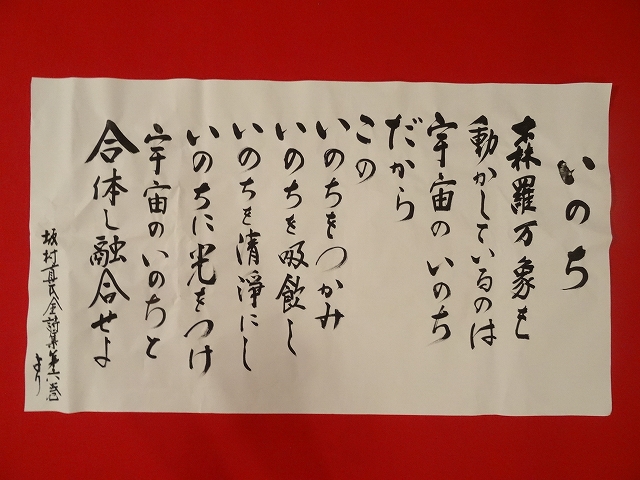 いのち
森羅万象を
動かしているのは
宇宙のいのち
だから
この
いのちをつかみ
いのちを吸飲し
いのちを清浄にし
いのちに光をつけ
宇宙のいのちと
合体し融合せよ
坂村真民全詩集第六巻
より